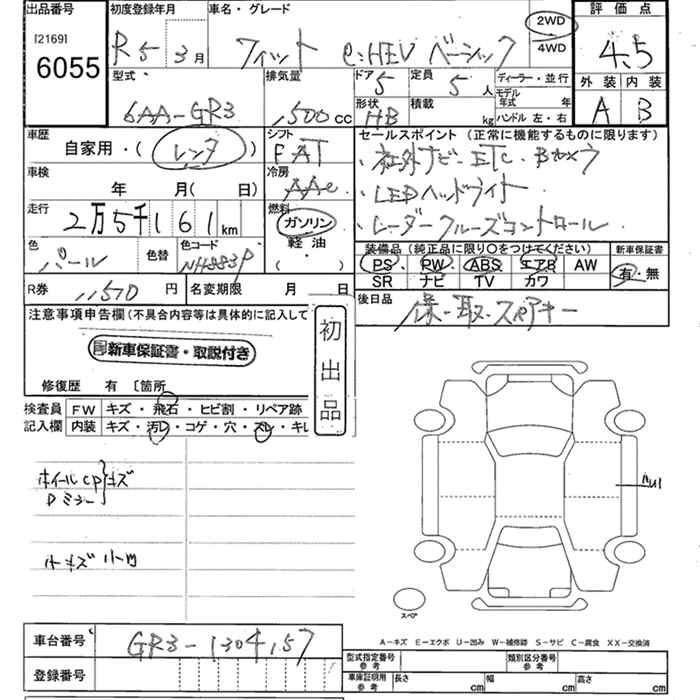 出品番号 初度登録年月 車名・グレード 評価点
[2169] R5 3月 フィット e:HEV ベーシック 2WD 4WD 4.5
6055
型式 排気量 ドア 定員 ディーラー・並行 外装 内装
6AA-GR3 1,500cc 5 5人 モデル年式 年 A B
形状 積載 ハンドル 左・右
HB kg
車歴 シフト セールスポイント (正常に機能するものに限ります)
自家用・(レンタ) FAT ・社外ナビ・ETC・Bカメラ
車検 冷房
年 月( 日) AAC ・LEDヘッドライト
走行 燃料
2万5千161km ガソリン ・レーダークルーズコントロール
軽油
・( )
色 色替 色コード 装備品(純正品に限り○をつけてください) 新車保証書
パール NH883P PS PW ABS エアB AW 有・無
SR ナビ TV カワ
R券 11,510円 名変期限 月 日 後日品
保・取・スペアキー
注意事項申告欄(不具合内容等は具体的に記入して 初出品
新車保証書・取説付き
修復歴 有 〔箇所
検査員 FW キズ・飛石・ヒビ割・リペア跡
記入欄 内装 キズ・汚レ・コゲ・穴・スレ・キレ
ホイールCP キズ
Dミラー
小キズ 小凹
スペア
A-キズ E-エクボ U-凹み W-補修跡 S-サビ C-腐食 XX-交換済
車台番号 GR3-1304157
登録番号
型式指定番号 参考 類別区分番号 参考
車庫証明用 参考 長さ cm 幅 cm 高さ cm